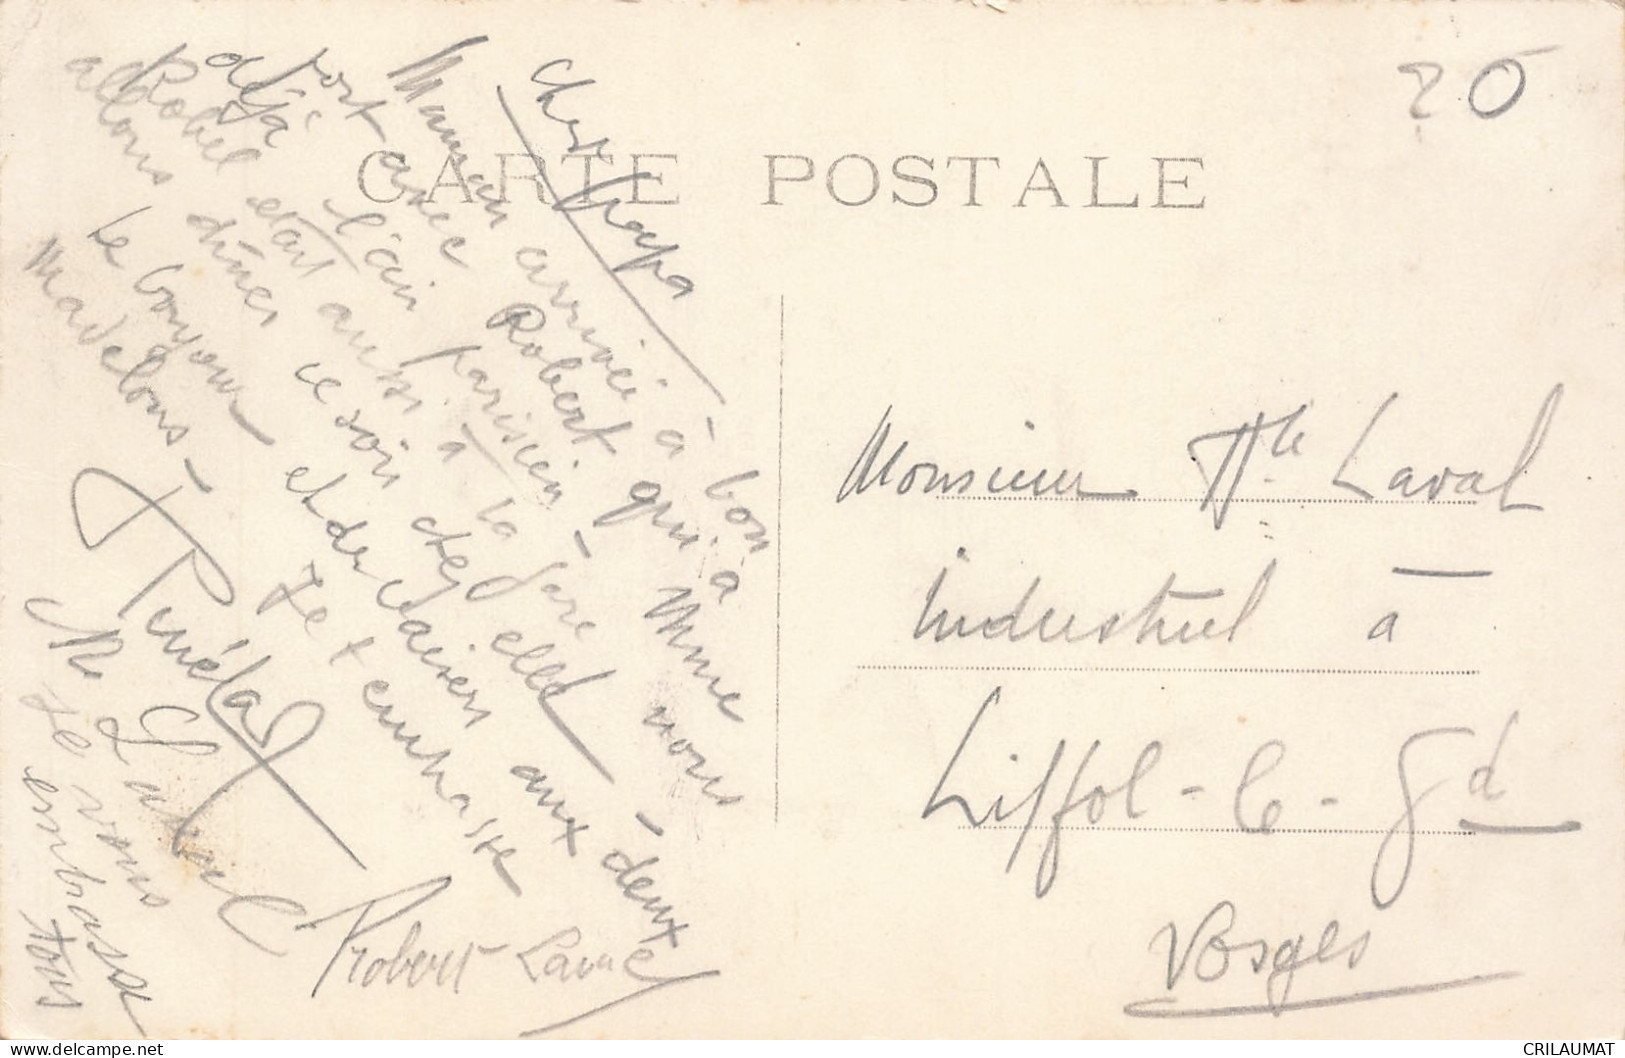 CARTE POSTALE
20
Cher Papa
Maman arrivée à bon
port avec Robert qui a
déjà l'air parisien - Mme
Robel était aussi à la gare nous
allons dîner ce soir chez elle
Le bonjour et des baisers aux deux
madelons - Je t'embrasse
M Laval
Robert Laval
Je vous
embrasse
tous
Monsieur Hte Laval
Industriel à
Liffol-le-Gd
Vosges
CRILAUMAT